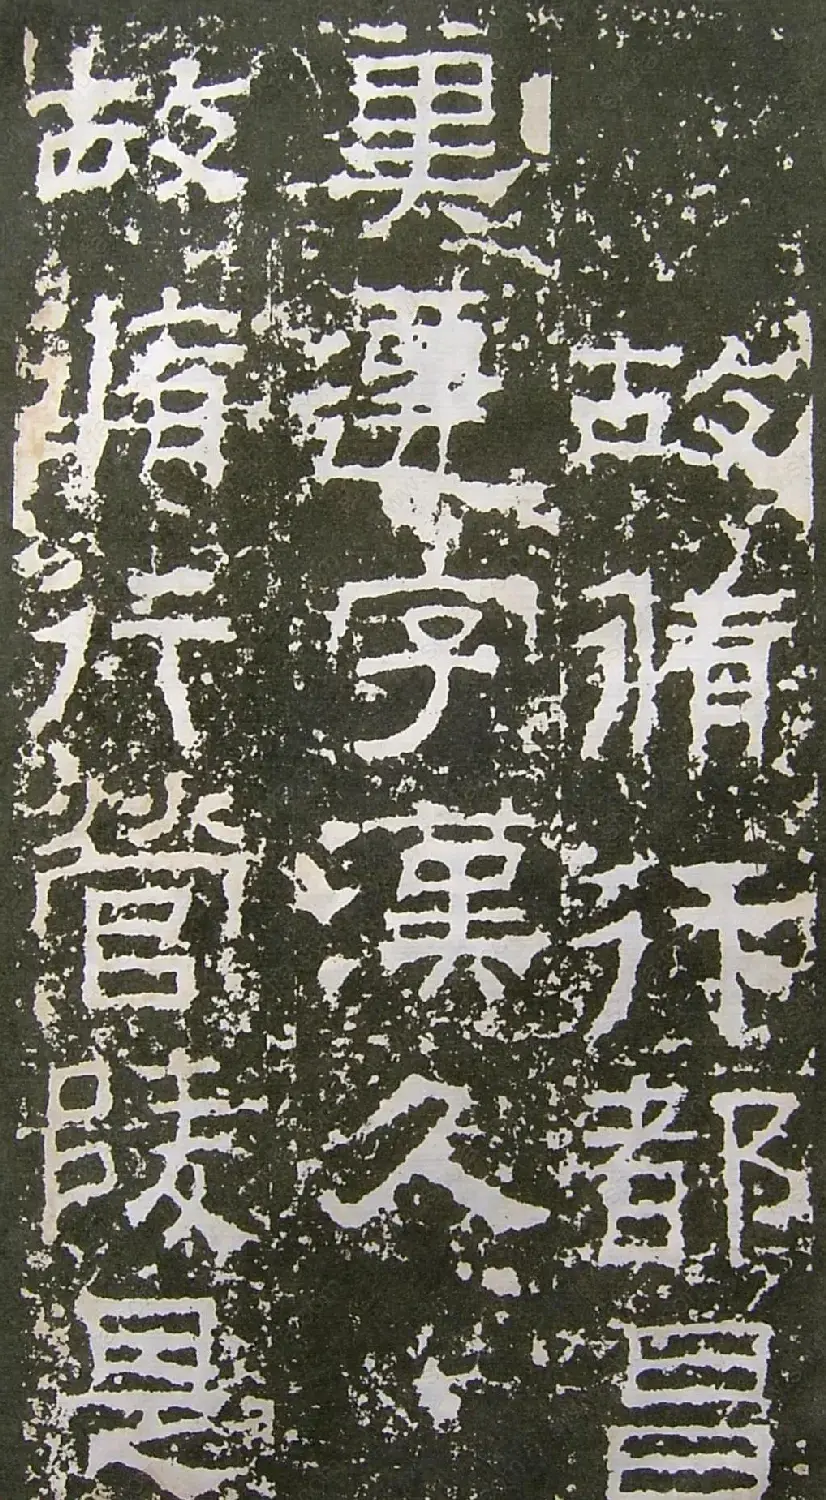 故脩行都昌
冀遷字漢久
故脩行營陵是